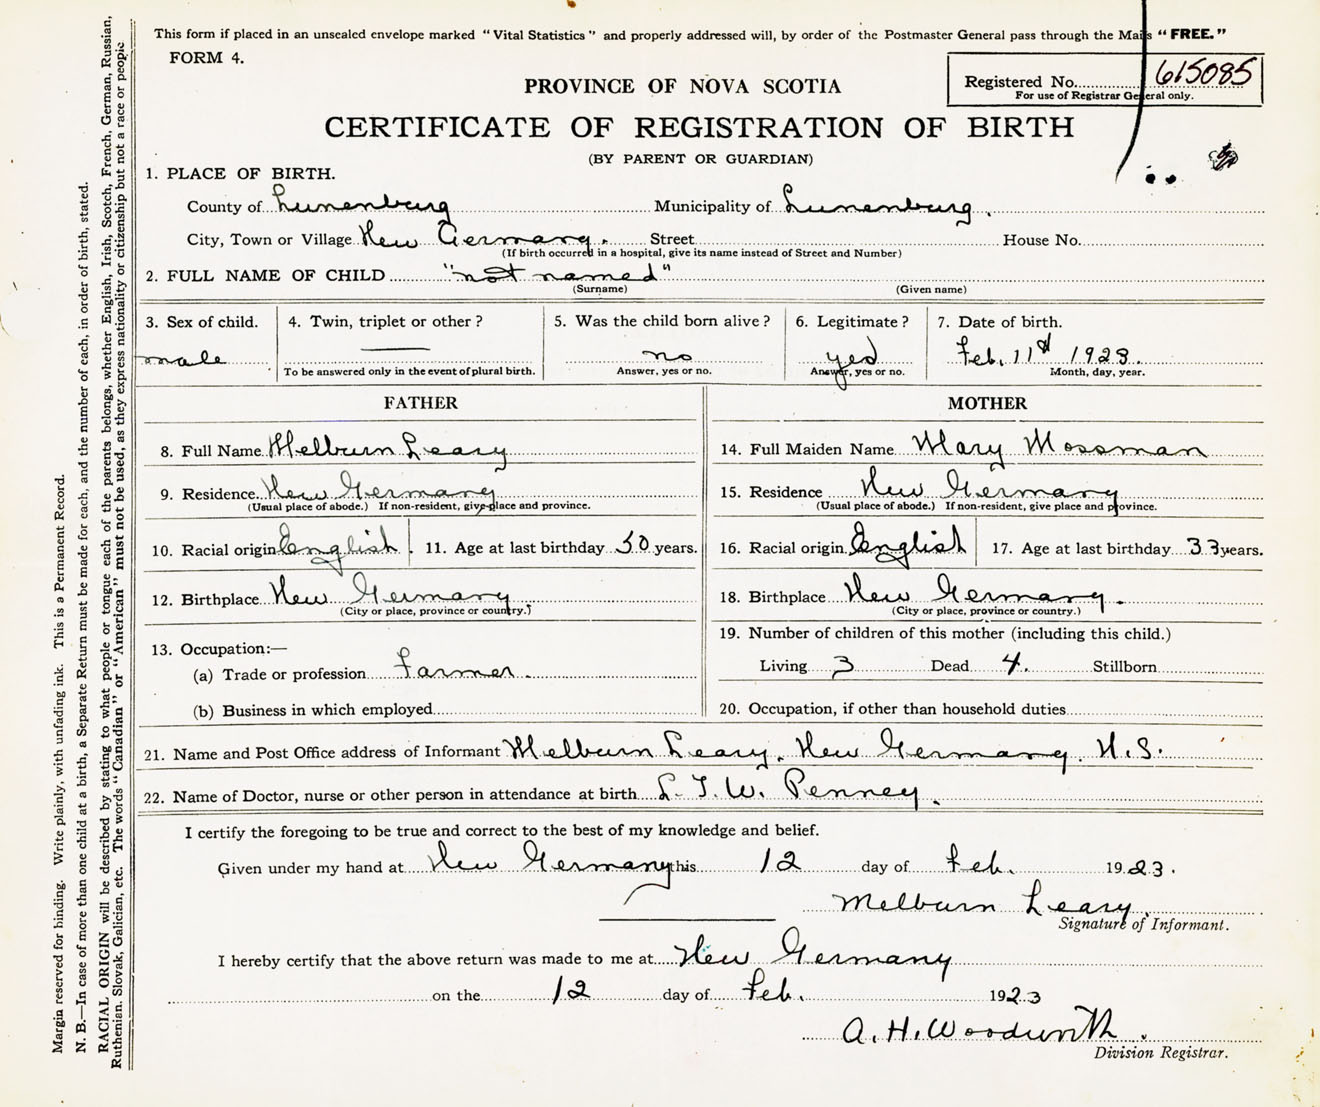 This form if placed in an unsealed envelope marked "Vital Statistics" and properly addressed will, by order of the Postmaster General pass through the Mails "FREE."
FORM 4.
Registered No. 615085
For use of Registrar General only.
PROVINCE OF NOVA SCOTIA
CERTIFICATE OF REGISTRATION OF BIRTH
(BY PARENT OR GUARDIAN)
1. PLACE OF BIRTH.
County of Lunenburg Municipality of Lunenburg.
City, Town or Village New Germany. Street House No.
(If birth occurred in a hospital, give its name instead of Street and Number)
2. FULL NAME OF CHILD "not named"
(Surname) (Given name)
3. Sex of child. 4. Twin, triplet or other? 5. Was the child born alive? 6. Legitimate? 7. Date of birth.
male — no yes Feb. 11th 1923.
To be answered only in the event of plural birth. Answer, yes or no. Answer, yes or no. Month, day, year.
FATHER MOTHER
8. Full Name Melburn Leary 14. Full Maiden Name Mary Mossman
9. Residence New Germany 15. Residence New Germany
(Usual place of abode.) If non-resident, give place and province. (Usual place of abode.) If non-resident, give place and province.
10. Racial origin English. 11. Age at last birthday 50 years. 16. Racial origin English 17. Age at last birthday 33 years.
12. Birthplace New Germany 18. Birthplace New Germany.
(City or place, province or country.) (City or place, province or country.)
13. Occupation:— 19. Number of children of this mother (including this child.)
(a) Trade or profession Farmer. Living 3 Dead 4. Stillborn
(b) Business in which employed 20. Occupation, if other than household duties
21. Name and Post Office address of Informant Melburn Leary, New Germany, N.S.
22. Name of Doctor, nurse or other person in attendance at birth L. T. W. Penney.
I certify the foregoing to be true and correct to the best of my knowledge and belief.
Given under my hand at New Germany this 12 day of Feb. 1923.
Melburn Leary.
Signature of Informant.
I hereby certify that the above return was made to me at New Germany
on the 12 day of Feb. 1923
A. H. Woodworth.
Division Registrar.
Margin reserved for binding. Write plainly, with unfading ink. This is a Permanent Record.
N. B.—In case of more than one child at a birth, a Separate Return must be made for each, and the number of each, in order of birth, stated.
RACIAL ORIGIN will be described by stating to what people or tongue each of the parents belongs, whether English, Irish, Scotch, French, German, Russian,
Ruthenian, Slovak, Galician, etc. The words "Canadian" or "American" must not be used, as they express nationality or citizenship but not a race or people